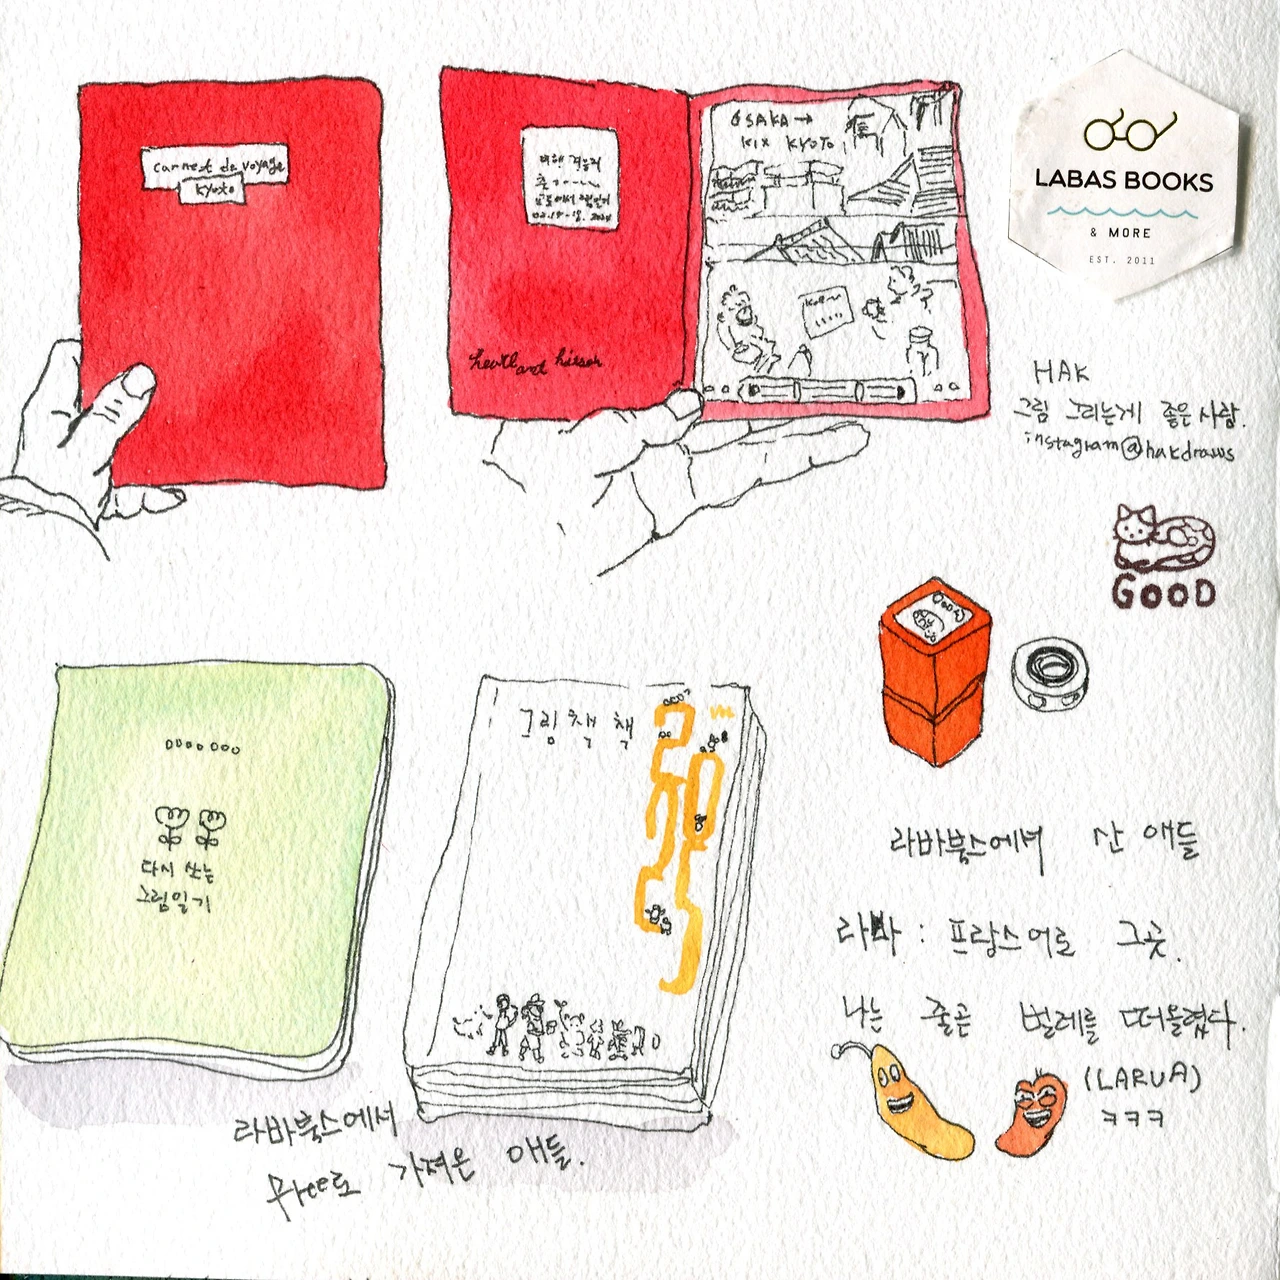 carnet de voyage
Kyoto
02.15-18. 2024
heart and hitsor
OSAKA →
KIX KYOTO
LABAS BOOKS
& MORE
EST. 2011
HAK
그림 그리는게 좋은 사람.
instagram@hakdraws
GOOD
다시 쓰는
그림일기
그림책 책
VOL
2025
라바북스에서 산 애들
라바 : 프랑스어로 그곳.
나는 줄곧 벌레를 떠올렸다.
(LARVA)
ㅋㅋㅋ
라바북스에서
free로 가져온 애들.